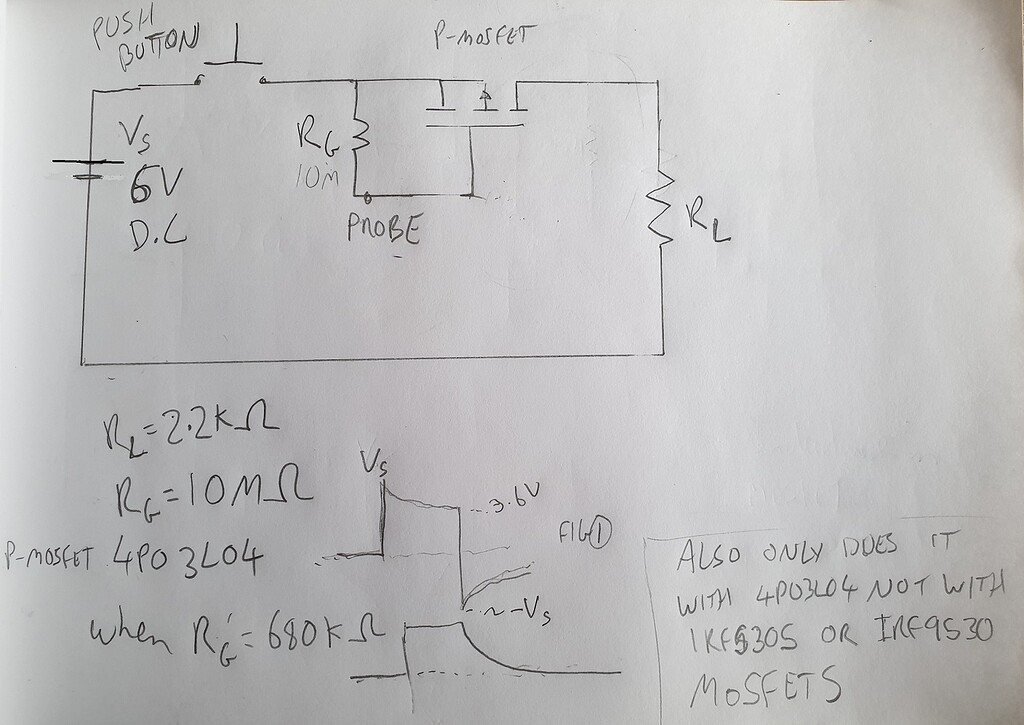 PUSH
BUTTON
P-MOSFET
VS
6V
D.C
RG
10M
PROBE
RL
RL=2.2KΩ
RG=10MΩ
P-MOSFET 4P03L04
when RG'=680KΩ
VS
3.6V
~-VS
FIG①
ALSO ONLY DOES IT
WITH 4P03L04 NOT WITH
IRF530S OR IRF9530
MOSFETS